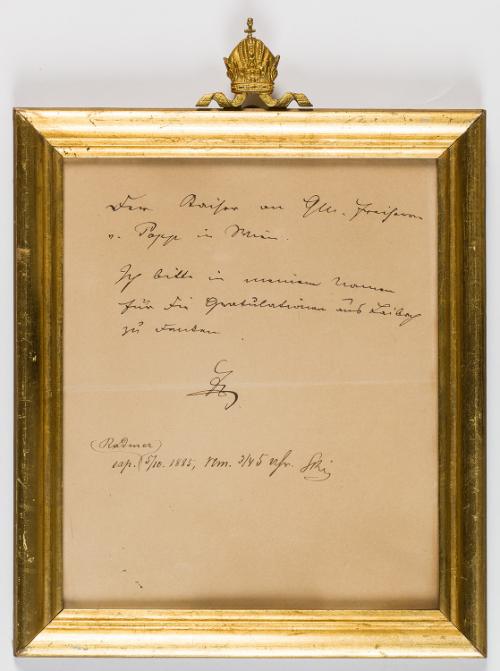 Der Kaiser an GM. Freiherrn
v. Popp in Wien.
Ich bitte in meinem Namen
für die Gratulationen aus Laibach
zu danken
Radmer
exp. 5/10. 1885, Nm. 3/45 Uhr.